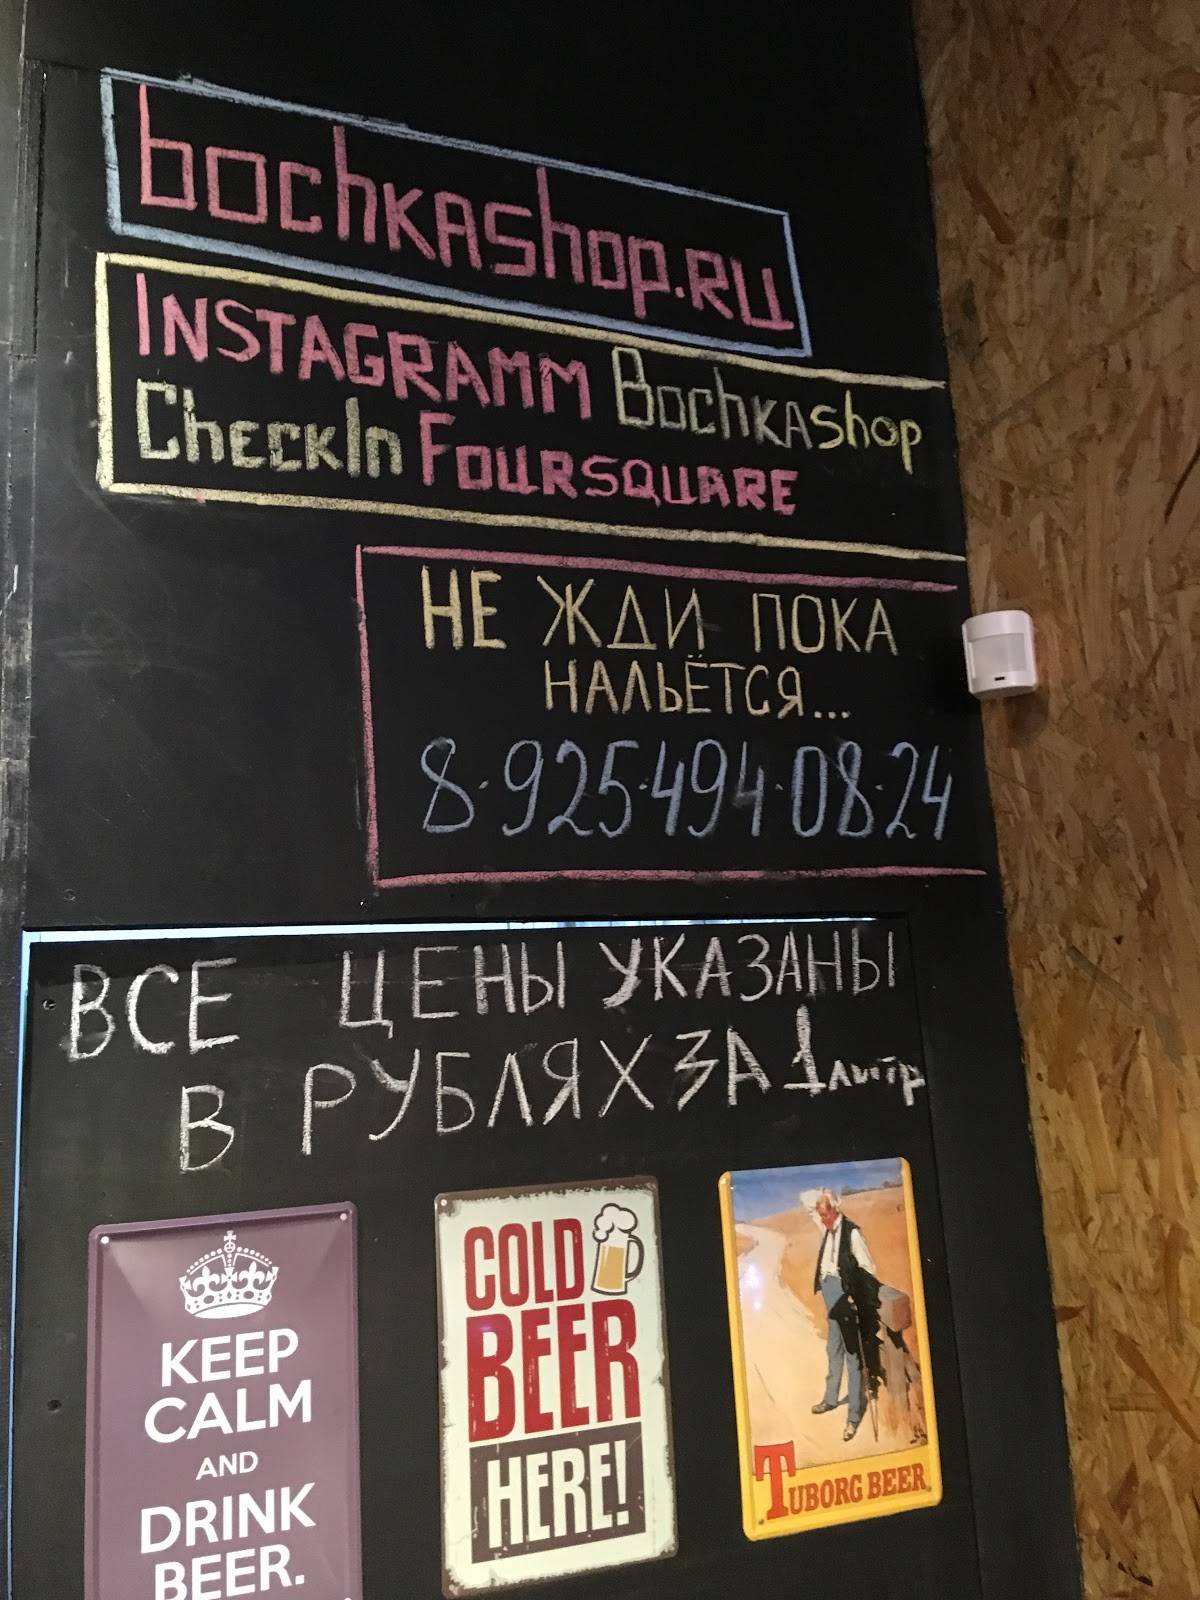 bochkashop.ru
INSTAGRAMM Bochkashop
CheckIn FOURSQUARE
НЕ ЖДИ ПОКА
НАЛЬЁТСЯ...
8·925·494·08·24
ВСЕ ЦЕНЫ УКАЗАНЫ
В РУБЛЯХ ЗА 1 литр
KEEP
CALM
AND
DRINK
BEER.
COLD
BEER
HERE!
TUBORG BEER